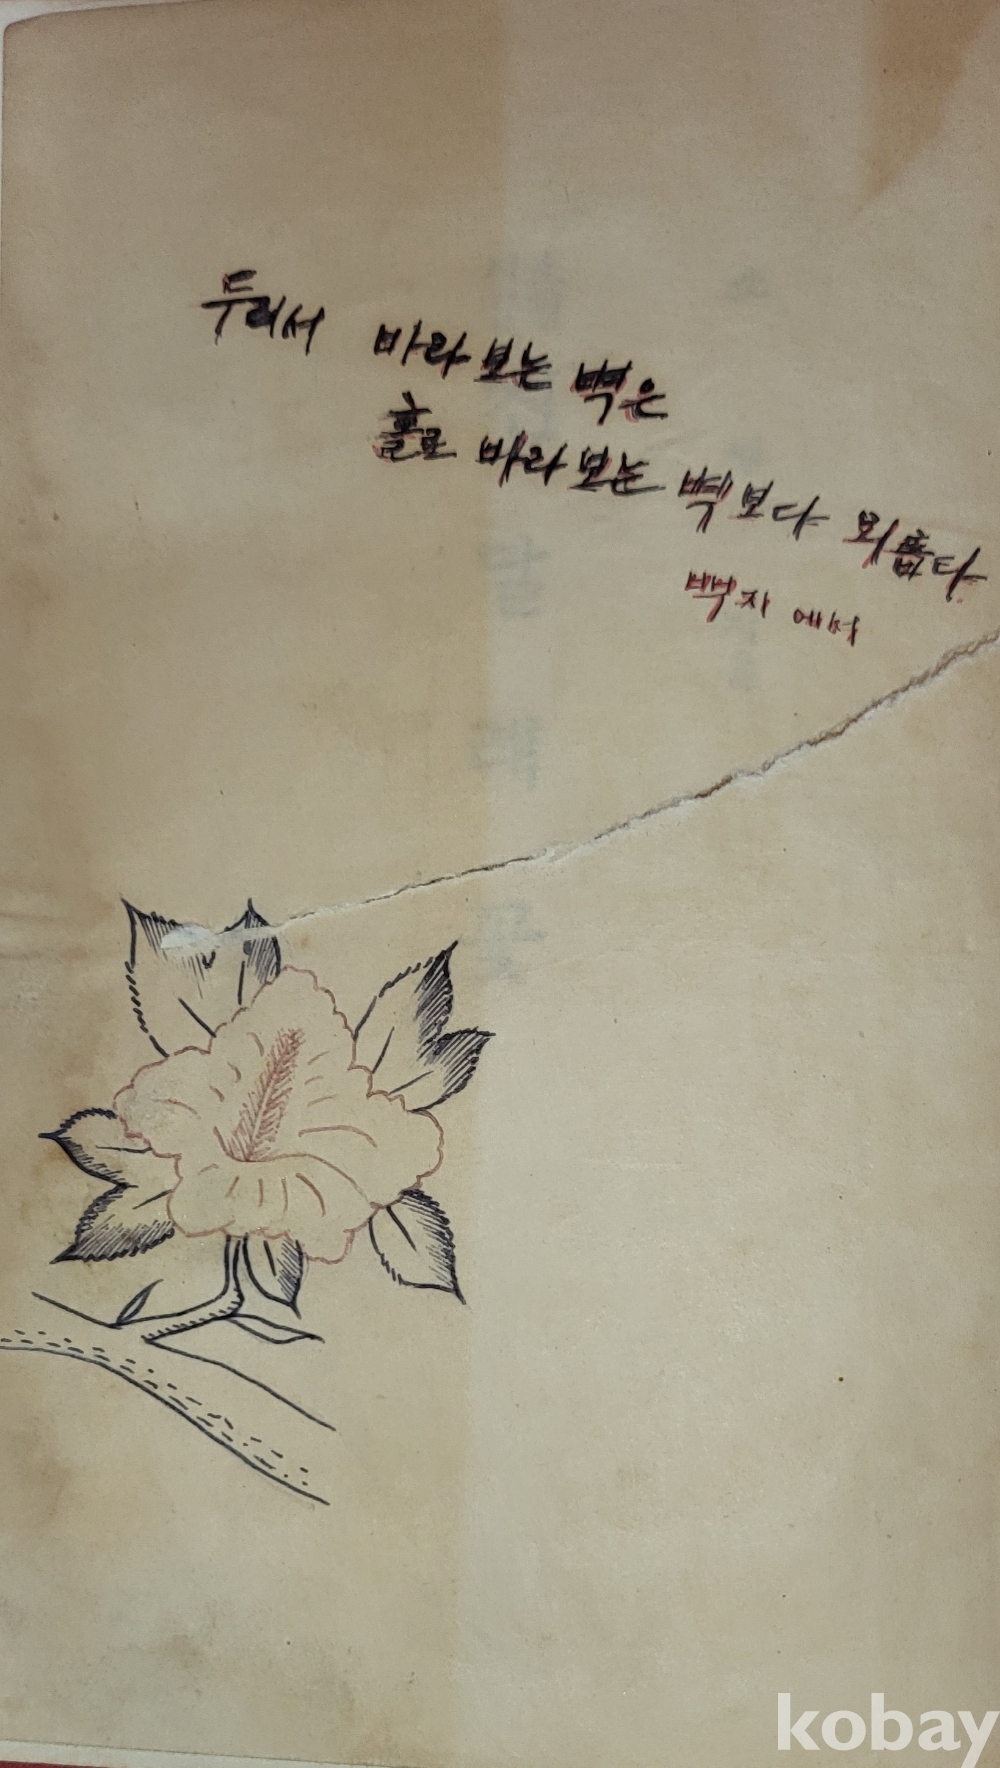 두리서 바라보는 벽은
홀로 바라보는 벽보다 외롭다
벽지에서
kobay